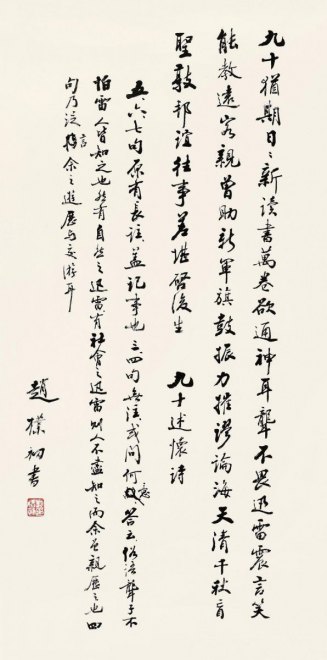 九十猶期日日新讀書萬卷欲通神耳聾不畏迅雷震言笑
能教遠客親曾助新軍旗鼓振力摧謬論海天清千秋盲
聖敦邦誼往事差堪啓後生 九十述懷詩
五六七句原有長註蓋記事也三四句無注或問何意答云俗語聾子不
怕雷人皆知之也然有自然之迅雷有社會之迅雷則人不盡知之而余曾親歷之也四
句乃泛言余之遊展与交游耳
趙樸初書